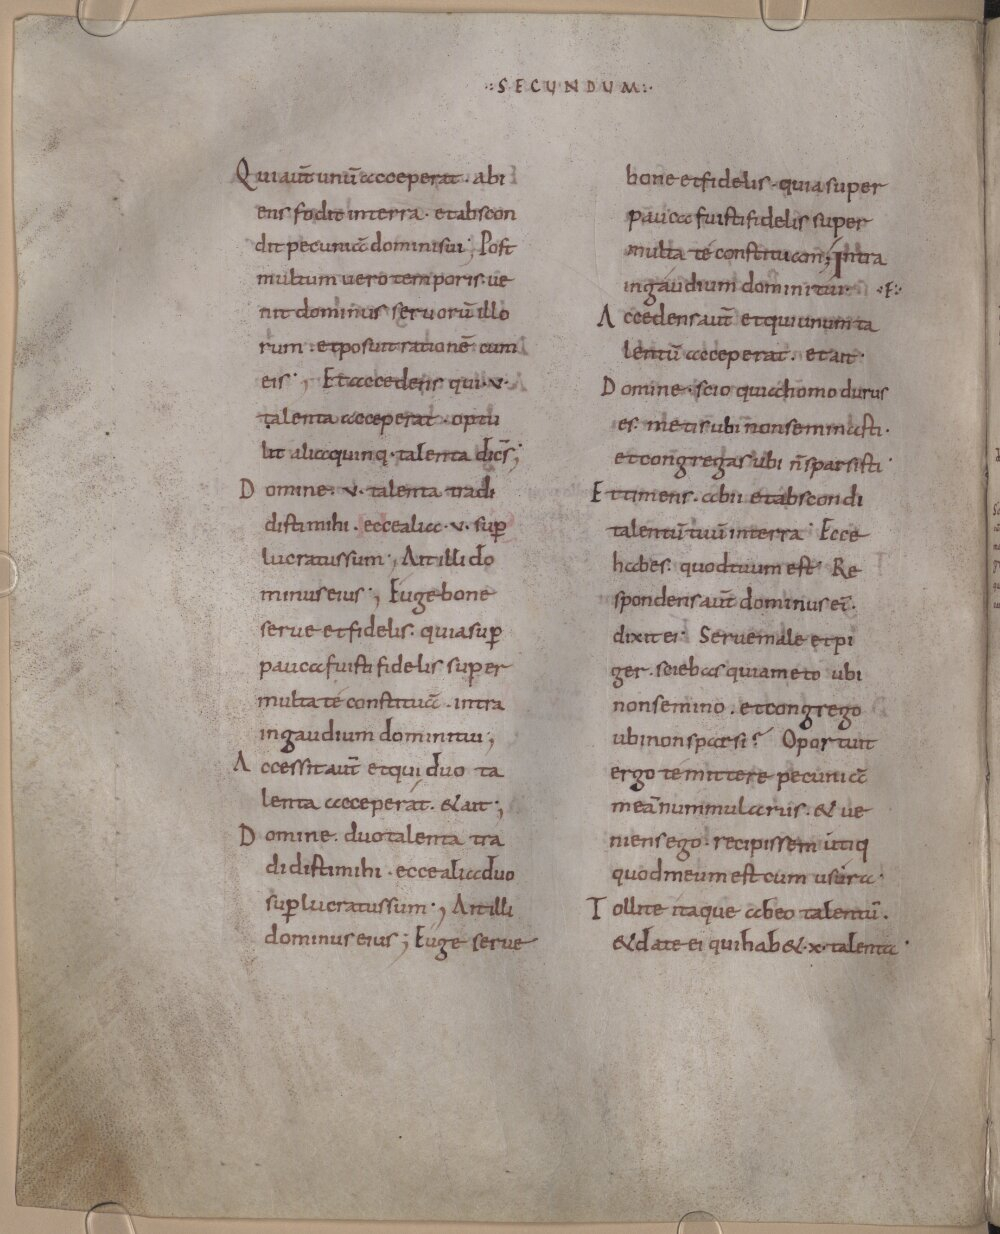 ·:SECUNDUM:·
Qui aut̄ unū acceperat · abi
ens fodit in terra · et abscon
dit pecuniā domini sui ; Post
multum vero temporis · ve
nit dominus servorū illo
rum · et posuit rationē cum
eis ·, Et accedens qui · v ·
talenta acceperat · optu
lit alia quinq · talenta dic̄s ;
Domine · v · talenta tradi
disti mihi · ecce alia · v · sup̄
lucratus sum ·, Ait illi do
minus eius ·, Euge bone
serve et fidelis · quia sup̄
pauca fuisti fidelis super
multa te constituā · intra
in gaudium domini tui ·,
Accessit aut̄ et qui duo ta
lenta acceperat · & ait ·,
Domine · duo talenta tra
didisti mihi · ecce alia duo
sup̄lucratus sum ·, Ait illi
dominus eius ; Euge serve
bone et fidelis · quia super
pauca fuisti fidelis super
multa te constituam ; Intra
in gaudium domini tui · ·F:·
Accedens aut̄ et qui unum ta
lentū acceperat · et ait ·
Domine · scio quia homo durus
es · metis ubi non seminasti ·
et congregas ubi n̄ sparsisti ·
Et timens · abii et abscondi
talentū tuū in terra · Ecce
habes · quod tuum est · Re
spondens aut̄ dominus eī ·
dixit ei · Serve male et pi
ger · sciebas quia meto ubi
non semino · et congrego
ubi non sparsi ? Oportuit
ergo te mittere pecuniā
meā nummulariis · & ve
niens ego · recipissem utiq
quod meum est cum usura ·
Tollite itaque ab eo talentū ·
& date ei qui hab& · x · talenta ·